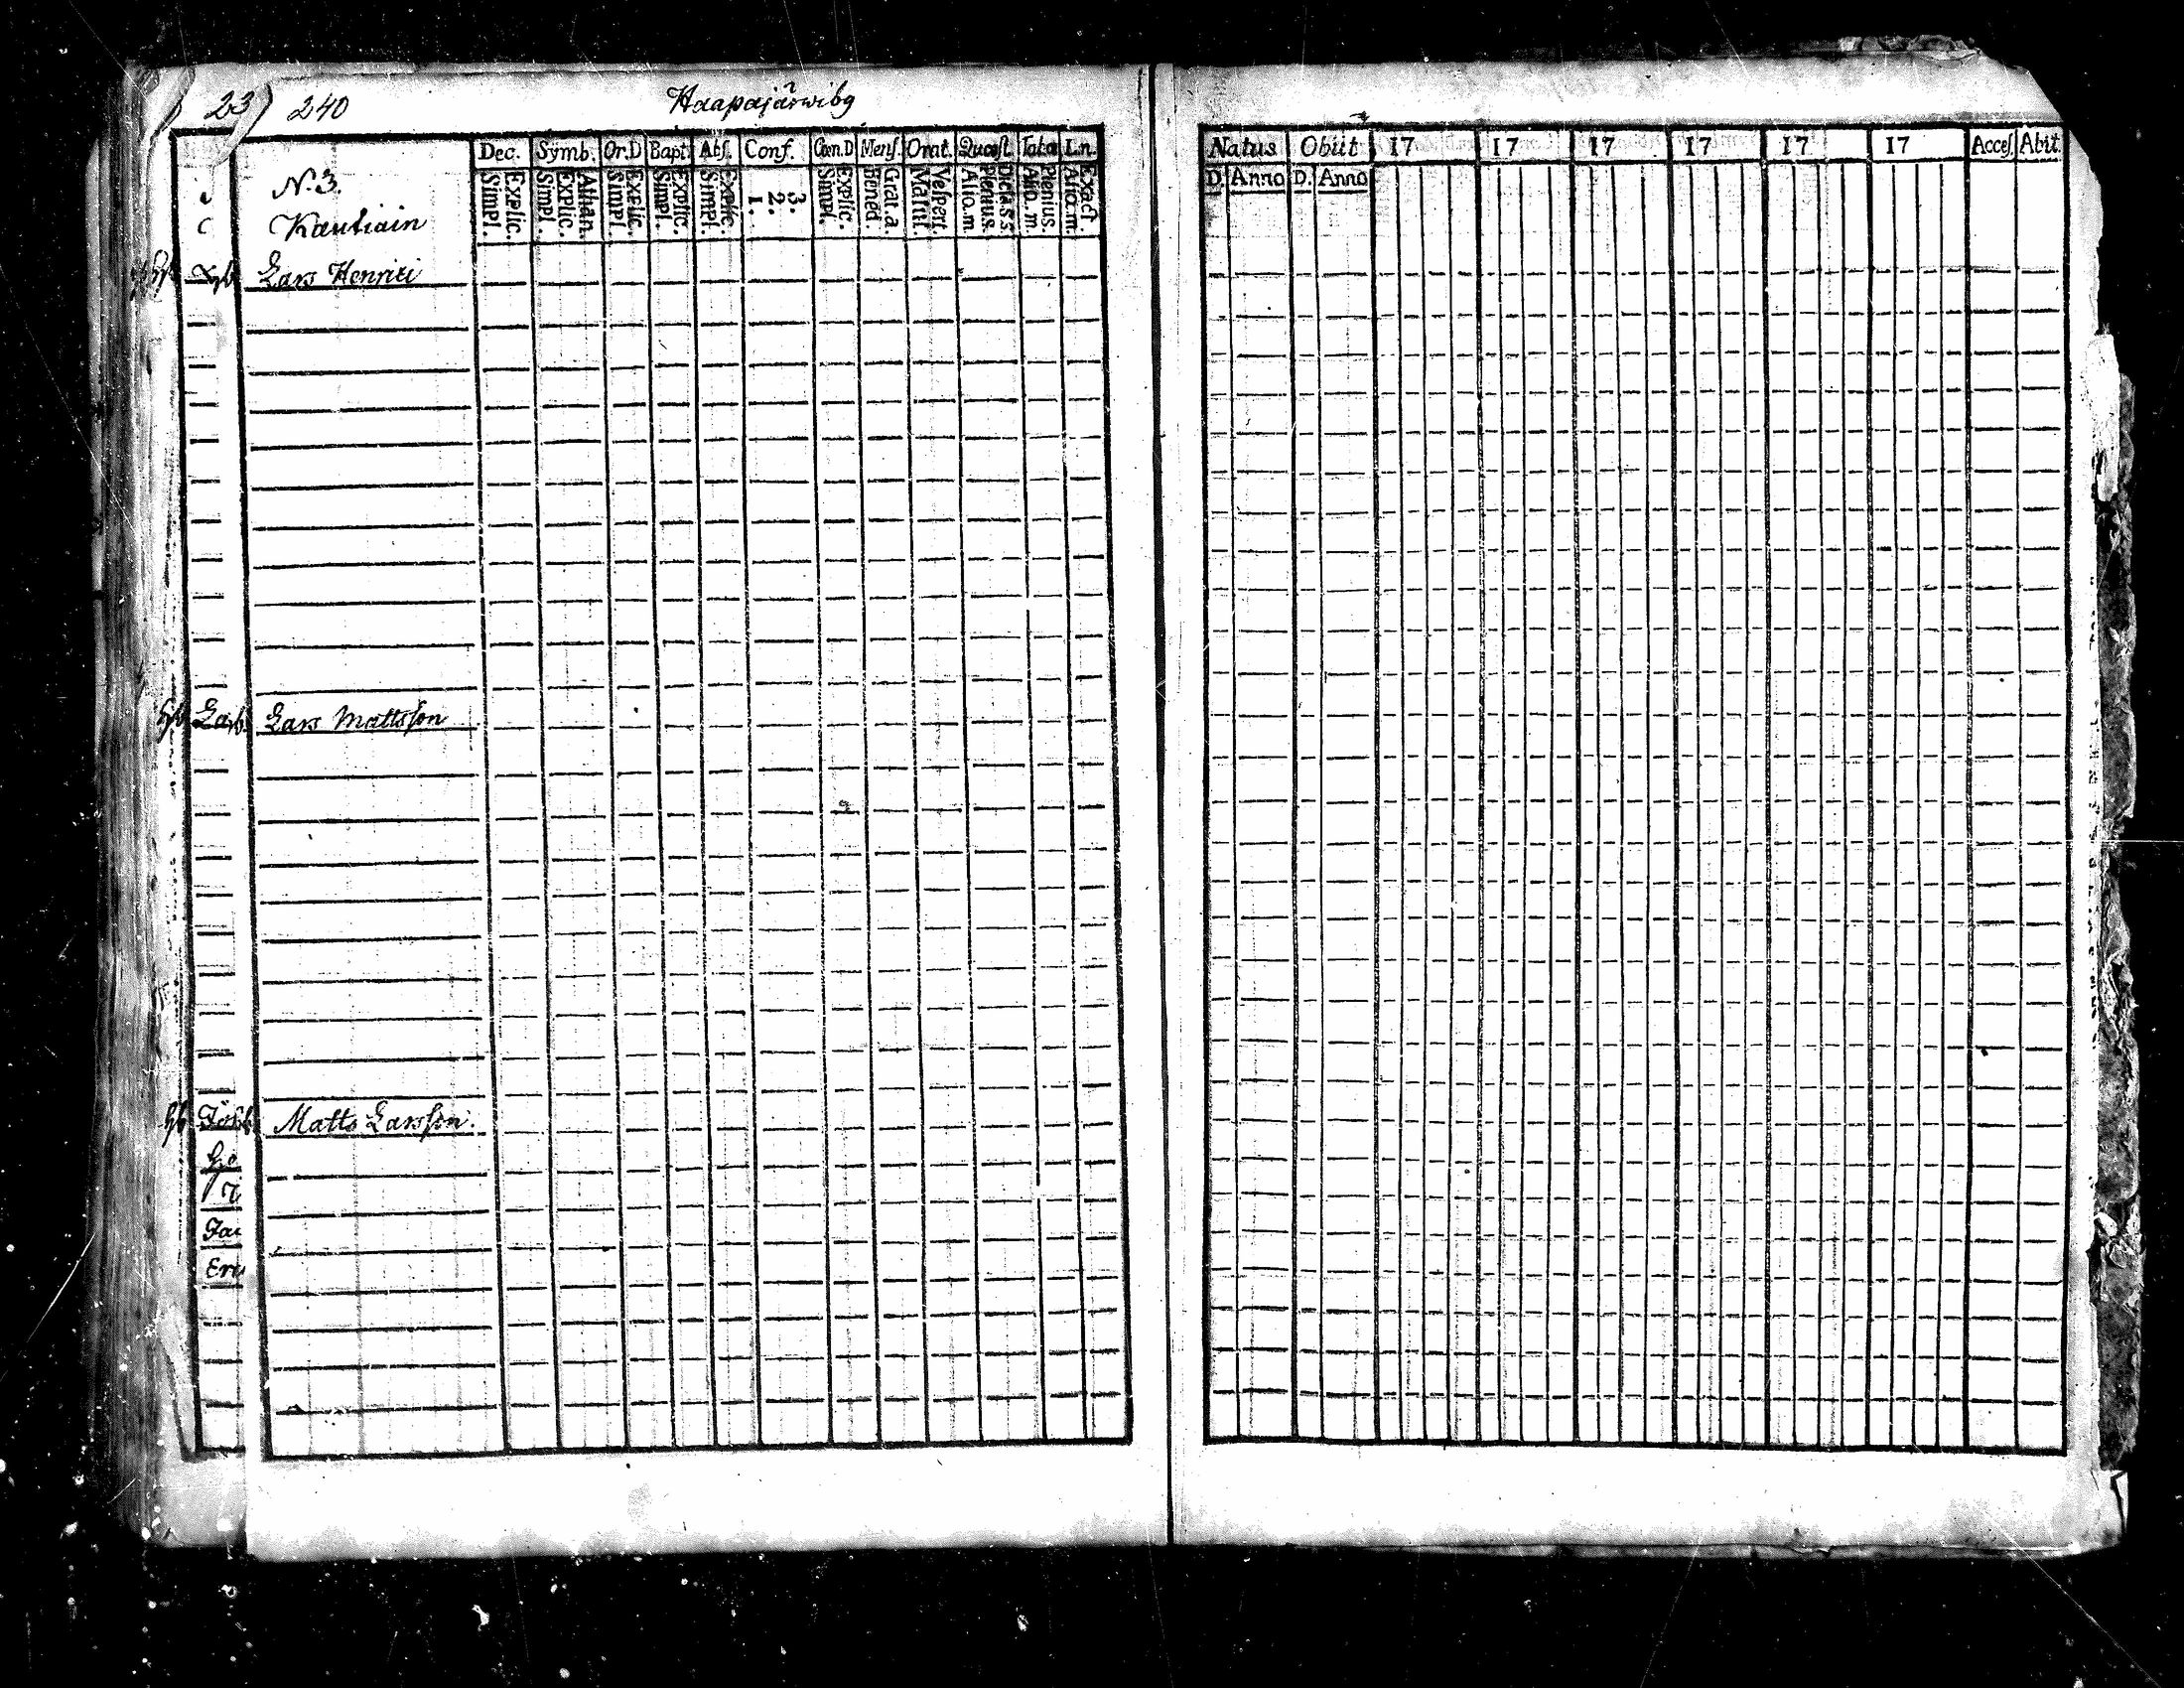 23) 240 Haapajärwiby
Dec. Symb. Or.D Bapt. Abs. Conf. Cœn.D Mens. Orat. Quæst. Tabæ L.n.
Simpl. Explic. Simpl. Explic. Athan. Simpl. Explic. Simpl. Explic. Simpl. Explic. 1. 2. 3. Simpl. Explic. Bened. Grat.a. Matut. Vespert. Alio.m. Plenius. Dicta s.s. Alio.m. Plenius. Alio.m. Exact.
N.3.
Kautiain
Lars Henrici
Lars Mattsson
Matts Larsson.
Natus Obiit 17 17 17 17 17 17 Acces. Abit.
D. Anno D. Anno